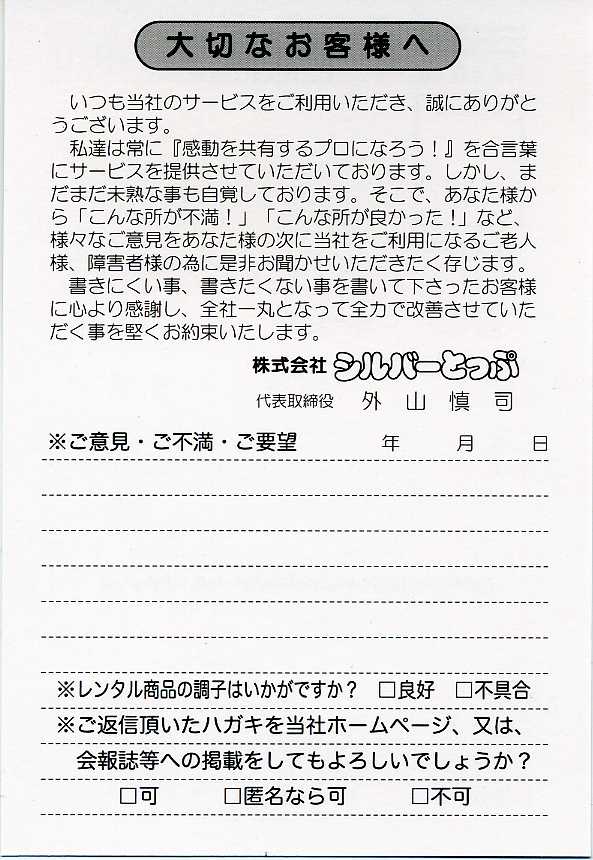 大切なお客様へ
いつも当社のサービスをご利用いただき、誠にありがと
うございます。
私達は常に『感動を共有するプロになろう！』を合言葉
にサービスを提供させていただいております。しかし、ま
だまだ未熟な事も自覚しております。そこで、あなた様か
ら「こんな所が不満！」「こんな所が良かった！」など、
様々なご意見をあなた様の次に当社をご利用になるご老人
様、障害者様の為に是非お聞かせいただきたく存じます。
書きにくい事、書きたくない事を書いて下さったお客様
に心より感謝し、全社一丸となって全力で改善させていた
だく事を堅くお約束いたします。
株式会社 シルバーとっぷ
代表取締役 外山慎司
※ご意見・ご不満・ご要望 年 月 日
※レンタル商品の調子はいかがですか？ □良好 □不具合
※ご返信頂いたハガキを当社ホームページ、又は、
会報誌等への掲載をしてもよろしいでしょうか？
□可 □匿名なら可 □不可